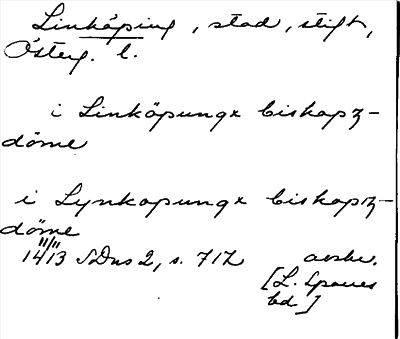 Linköping, stad, stift,
Österg. l.
i Linköpungx biskopz-
döme
i Lynkopungx biskopz-
döme
11/11
1413 SDns 2, s. 717 avskr.
[L. Sparres
bd]